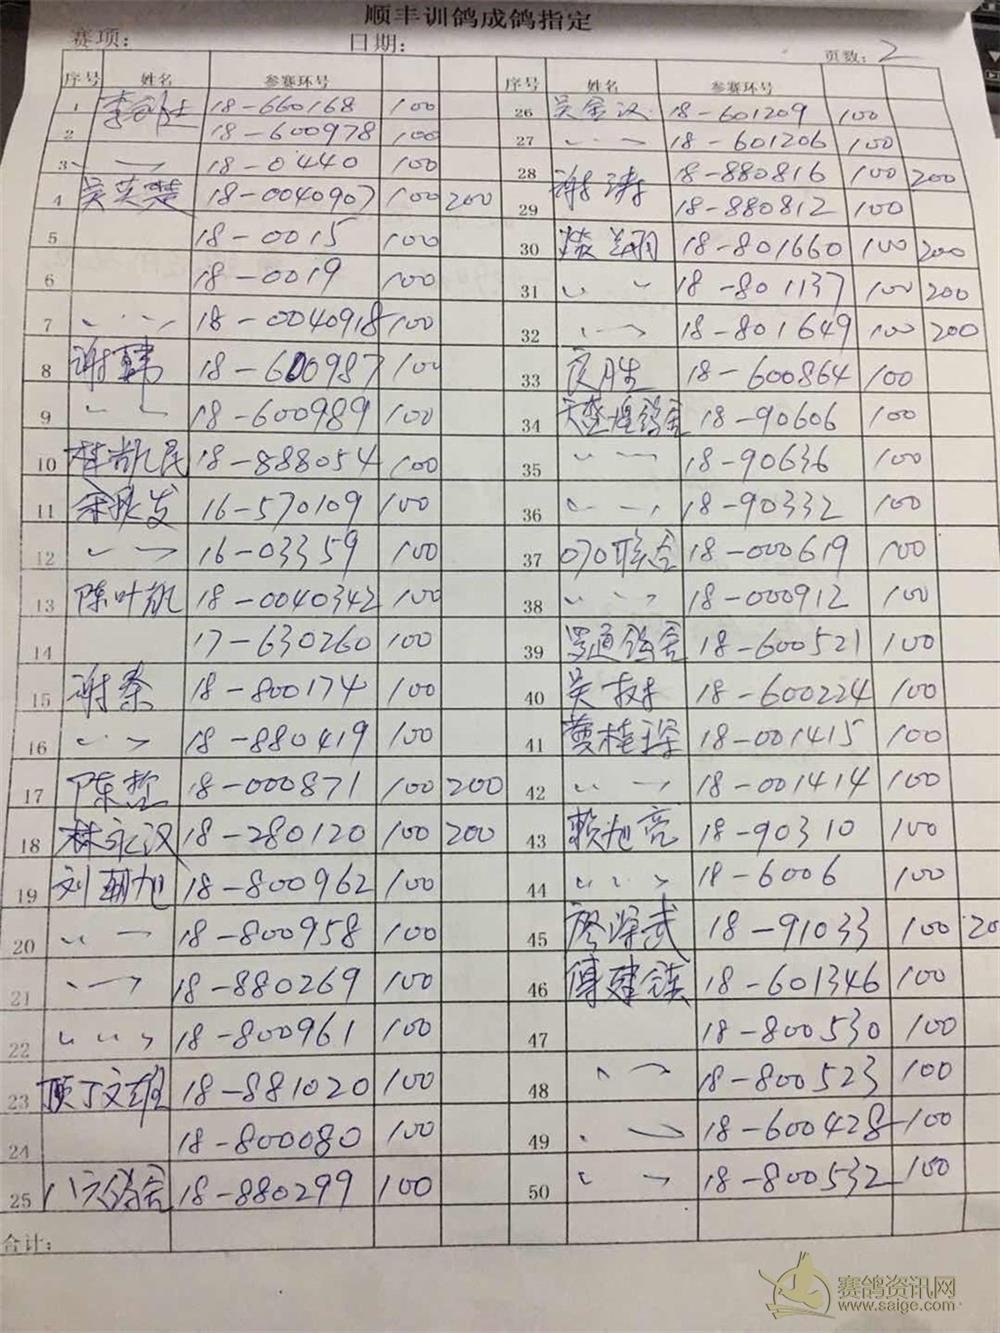 顺丰训鸽成鸽指定
赛项： 日期： 页数：2
序号 姓名 参赛环号
1 18-660168 100
2 18-600978 100
3 〃 18-0440 100
4 吴英楚 18-0040907 100 200
5 18-0015 100
6 18-0019 100
7 〃 18-0040918 100
8 谢韩 18-600987 100
9 〃 18-600989 100
10 林凯民 18-888054 100
11 18-570109 100
12 〃 16-03359 100
13 陈叶凯 18-0040342 100
14 17-630260 100
15 谢泰 18-800174 100
16 〃 18-880419 100
17 陈哲 18-000871 100 200
18 林永汉 18-280120 100 200
19 刘朝旭 18-800962 100
20 〃 18-800958 100
21 〃 18-880269 100
22 〃 18-800961 100
23 顶丁文雄 18-881020 100
24 18-800080 100
25 八六鸽舍 18-880299 100
合计：
序号 姓名 参赛环号
26 吴金汉 18-601209 100
27 〃 18-601206 100
28 谢涛 18-880816 100 200
29 18-880812 100
30 18-801660 100 200
31 〃 18-801137 100 200
32 〃 18-801649 100 200
33 18-600864 100
34 18-90606 100
35 〃 18-90636 100
36 〃 18-90332 100
37 070联合 18-000619 100
38 〃 18-000912 100
39 罗通鸽舍 18-600521 100
40 吴 18-600224 100
41 黄桂琛 18-001415 100
42 〃 18-001414 100
43 赖旭亮 18-90310 100
44 〃 18-6006 100
45 廖泽武 18-91033 100 20
46 傅建 18-601346 100
47 18-800530 100
48 〃 18-800523 100
49 〃 18-600428 100
50 〃 18-800532 100
赛鸽资讯网
www.saige.com